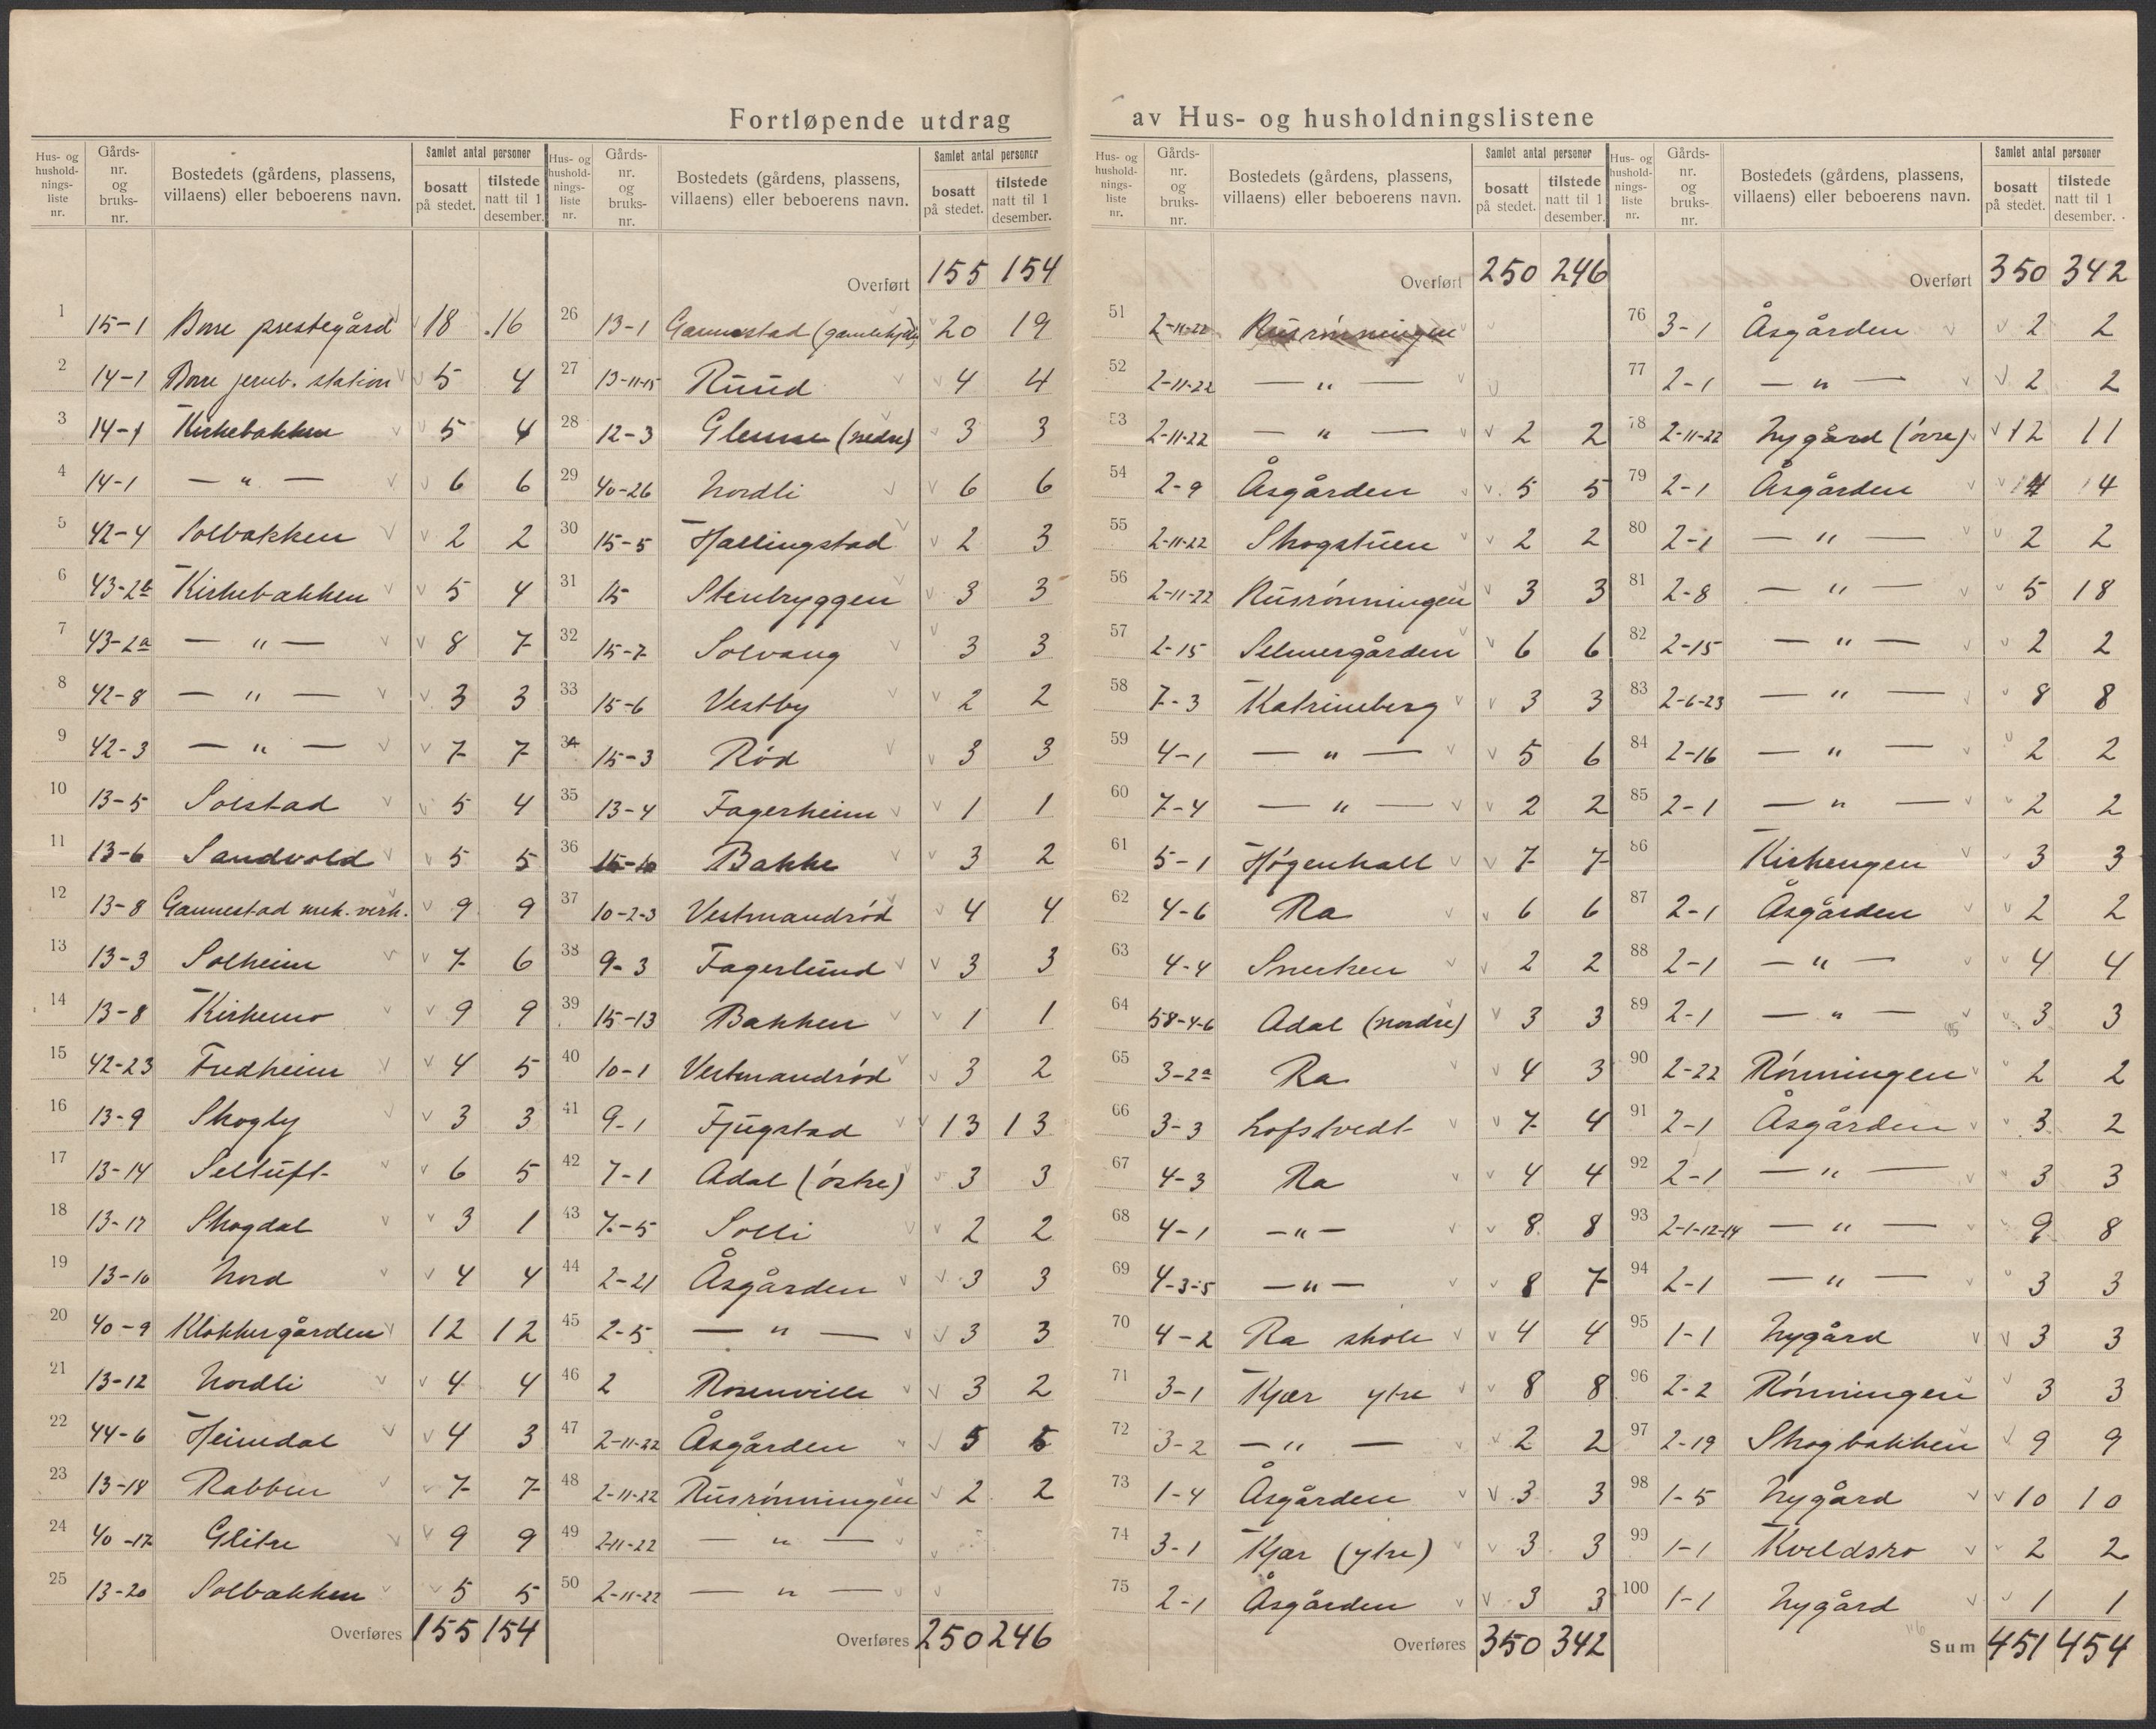 Fortløpende utdrag av Hus- og husholdningslistene
Hus- og husholdnings-liste nr. | Gårds-nr. og bruks-nr. | Bostedets (gårdens, plassens, villaens) eller beboerens navn. | Samlet antal personer | bosatt på stedet. | tilstede natt til 1 desember.
1 15-1 Borre prestegård 18 16
2 14-1 Borre jernb. station 5 4
3 14-1 Kirkebakken 5 4
4 14-1 — " — 6 6
5 42-4 Solbakken 2 2
6 43-2b Kirkebakken 5 4
7 43-2a — " — 8 7
8 42-8 — " — 3 3
9 42-3 — " — 7 7
10 13-5 Solstad 5 4
11 13-6 Sandvold 5 5
12 13-8 Gannestad mek. verk. 9 9
13 13-3 Solheim 7 6
14 13-8 Kirkemo 9 9
15 42-23 Fredheim 4 5
16 13-9 Skogly 3 3
17 13-14 Seltuft 6 5
18 13-17 Skogdal 3 1
19 13-10 Nord 4 4
20 40-9 Klokkergården 12 12
21 13-12 Nordli 4 4
22 44-6 Heimdal 4 3
23 13-18 Rabben 7 7
24 40-17 Glitre 9 9
25 13-20 Solbakken 5 5
Overføres 155 154
Hus- og husholdnings-liste nr. | Gårds-nr. og bruks-nr. | Bostedets (gårdens, plassens, villaens) eller beboerens navn. | Samlet antal personer | bosatt på stedet. | tilstede natt til 1 desember.
Overført 155 154
26 13-1 Gannestad 20 19
27 13-11-15 Ruud 4 4
28 12-3 Glenne (nedre) 3 3
29 40-26 Nordli 6 6
30 15-5 Hallingstad 2 3
31 15 Stenbryggen 3 3
32 15-7 Solvang 3 3
33 15-6 Vestby 2 2
34 15-3 Rød 3 3
35 13-4 Fagerheim 1 1
36 15-10 Bakke 3 2
37 10-2-3 Vestmandrød 4 4
38 9-3 Fagerlund 3 3
39 15-13 Bakken 1 1
40 10-1 Vestmandrød 3 2
41 9-1 Fjugstad 13 13
42 7-1 Adal (østre) 3 3
43 7-5 Solli 2 2
44 2-21 Åsgården 3 3
45 2-5 — " — 3 3
46 2 Rosenville 3 2
47 2-11-22 Åsgården 5 5
48 2-11-22 Rusrønningen 2 2
49 2-11-22 — " —
50 2-11-22 — " —
Overføres 250 246
Hus- og husholdnings-liste nr. | Gårds-nr. og bruks-nr. | Bostedets (gårdens, plassens, villaens) eller beboerens navn. | Samlet antal personer | bosatt på stedet. | tilstede natt til 1 desember.
Overført 250 246
51 2-11-22 Rusrønningen
52 2-11-22 — " —
53 2-11-22 — " — 2 2
54 2-9 Åsgården 5 5
55 2-11-22 Skogstuen 2 2
56 2-11-22 Rusrønningen 3 3
57 2-15 Selmergården 6 6
58 7-3 Katrineberg 3 3
59 4-1 — " — 5 6
60 7-4 — " — 2 2
61 5-1 Høgenhall 7 7
62 4-6 Ra 6 6
63 4-4 Snerken 2 2
64 58-4-6 Adal (nordre) 3 3
65 3-2a Ra 4 3
66 3-3 Lofstvedt 7 4
67 4-3 Ra 4 4
68 4-1 — " — 8 8
69 4-3-5 — " — 8 7
70 4-2 Ra skole 4 4
71 3-1 Kjær ytre 8 8
72 3-2 — " — 2 2
73 1-4 Åsgården 3 3
74 3-1 Kjær (ytre) 3 3
75 2-1 Åsgården 3 3
Overføres 350 342
Hus- og husholdnings-liste nr. | Gårds-nr. og bruks-nr. | Bostedets (gårdens, plassens, villaens) eller beboerens navn. | Samlet antal personer | bosatt på stedet. | tilstede natt til 1 desember.
Overført 350 342
76 3-1 Åsgården 2 2
77 2-1 — " — 2 2
78 2-11-22 Nygård (øvre) 12 11
79 2-1 Åsgården 4 4
80 2-1 — " — 2 2
81 2-8 — " — 5 18
82 2-15 — " — 2 2
83 2-6-23 — " — 8 8
84 2-16 — " — 2 2
85 2-1 — " — 2 2
86 Kirkengen 3 3
87 2-1 Åsgården 2 2
88 2-1 — " — 4 4
89 2-1 — " — 3 3
90 2-22 Rønningen 2 2
91 2-1 Åsgården 3 2
92 2-1 — " — 3 3
93 2-1-12-14 — " — 9 8
94 2-1 — " — 3 3
95 1-1 Nygård 3 3
96 2-2 Rønningen 3 3
97 2-19 Skogbakken 9 9
98 1-5 Nygård 10 10
99 1-1 Kveldsro 2 2
100 1-1 Nygård 1 1
Sum 451 454